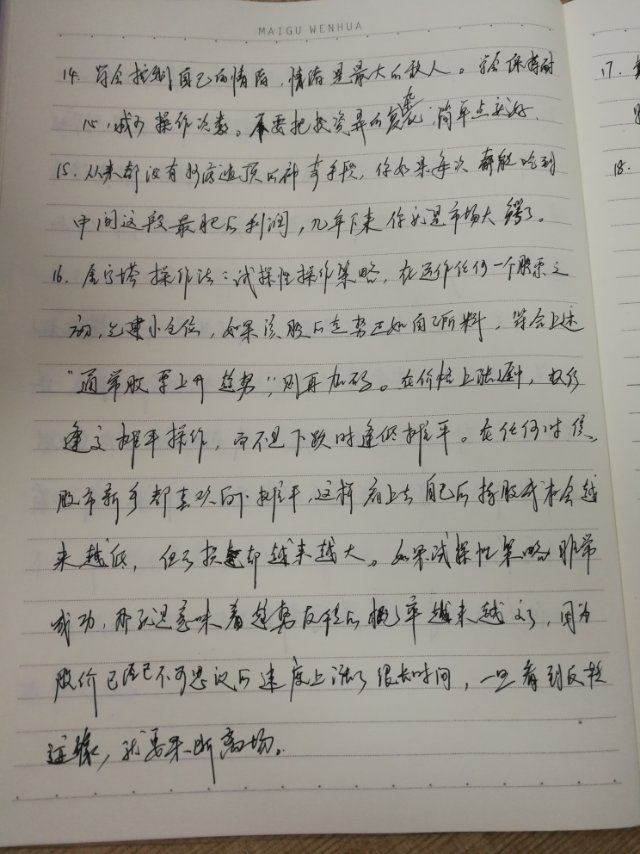 MAIGU WENHUA
14. 学会控制自己的情绪，情绪是最大的敌人。学会保持耐
心，减少操作次数。不要把投资弄的复杂，简单点就好。
15. 从来都没有抄底逃顶的神奇手段，你如果每次都能吃到
中间这段最肥的利润，几年下来你就是市场大鳄了。
16. 金字塔操作法：试探性操作策略，在运作任何一个股票之
初，先建小仓位，如果该股的走势正如自己所料，符合上述
“通常股票上升趋势”，则再加码。在价格上涨途中，执行
逢高摊平操作，而不是下跌时逢低摊平。在任何时候，
股市新手都喜欢向下摊平，这样看上去自己的持股成本会越
来越低，但亏损却越来越大。如果试探性策略非常
成功，那就意味着趋势反转的概率越来越高，因为
股价已经已不可思议的速度上涨了很长时间，一旦看到反转
迹象，就要果断离场。
17.
18.